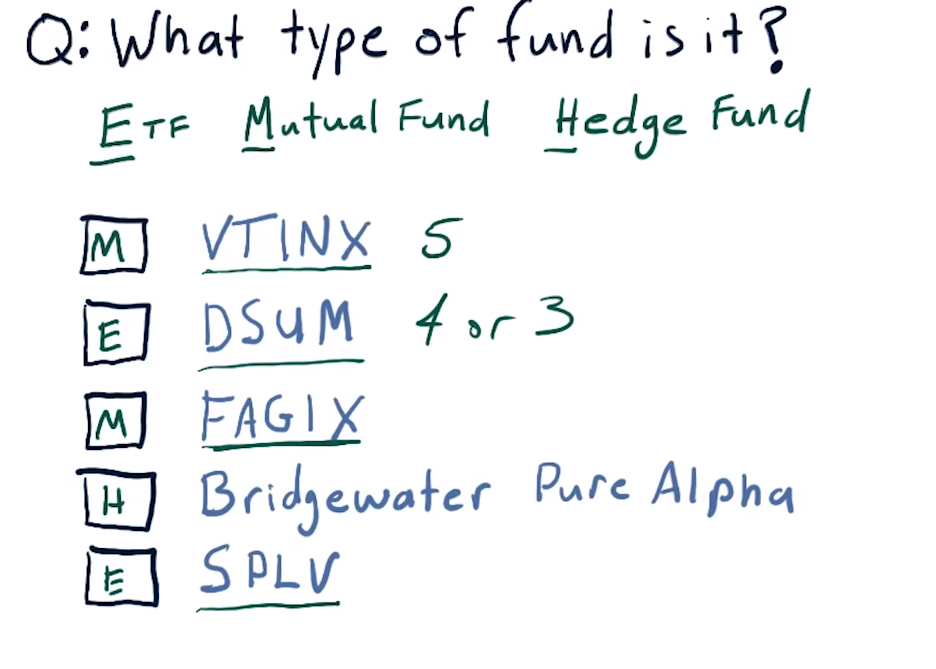 Q: What type of fund is it?
ETF Mutual Fund Hedge Fund
M VTINX 5
E DSUM 4 or 3
M FAGIX
H Bridgewater Pure Alpha
E SPLV